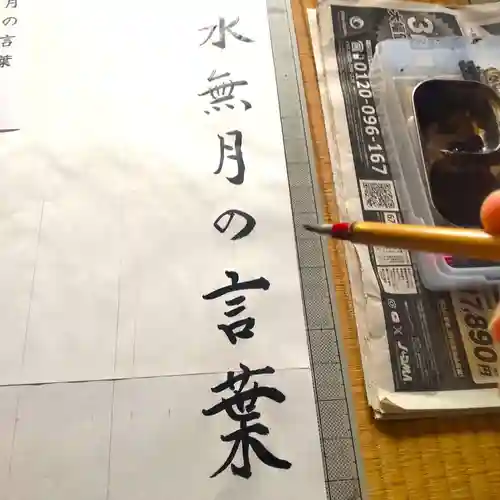 水無月の言葉
月の言葉
0120-096-167
7,890円